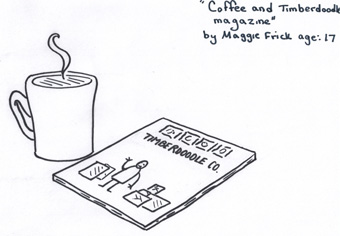 "Coffee and Timberdoodle
magazine"
by Maggie Frick age: 17
TIMBERDOODLE CO.